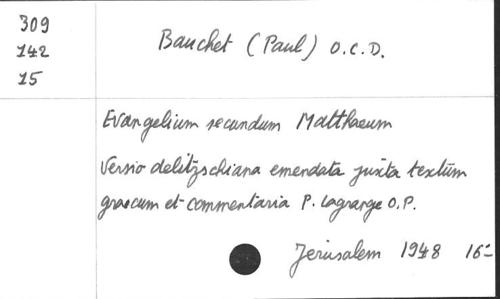 309
142
15
Bauchet (Paul) O.C.D.
Evangelium secundum Matthaeum
Versio delitzschiana emendata juxta textum
graecum et commentaria P. Lagrange O.P.
Jerusalem 1948 16-